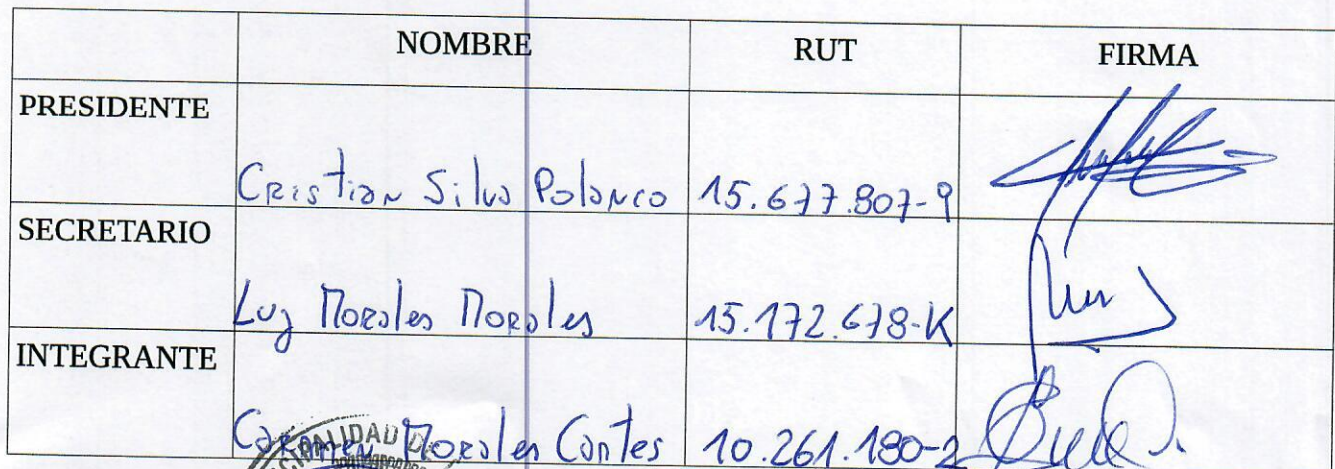 NOMBRE RUT FIRMA
PRESIDENTE
Cristian Silva Polanco 15.677.807-9
SECRETARIO
Luz Morales Morales 15.172.678-K
INTEGRANTE
Carmen Morales Contes 10.261.180-2